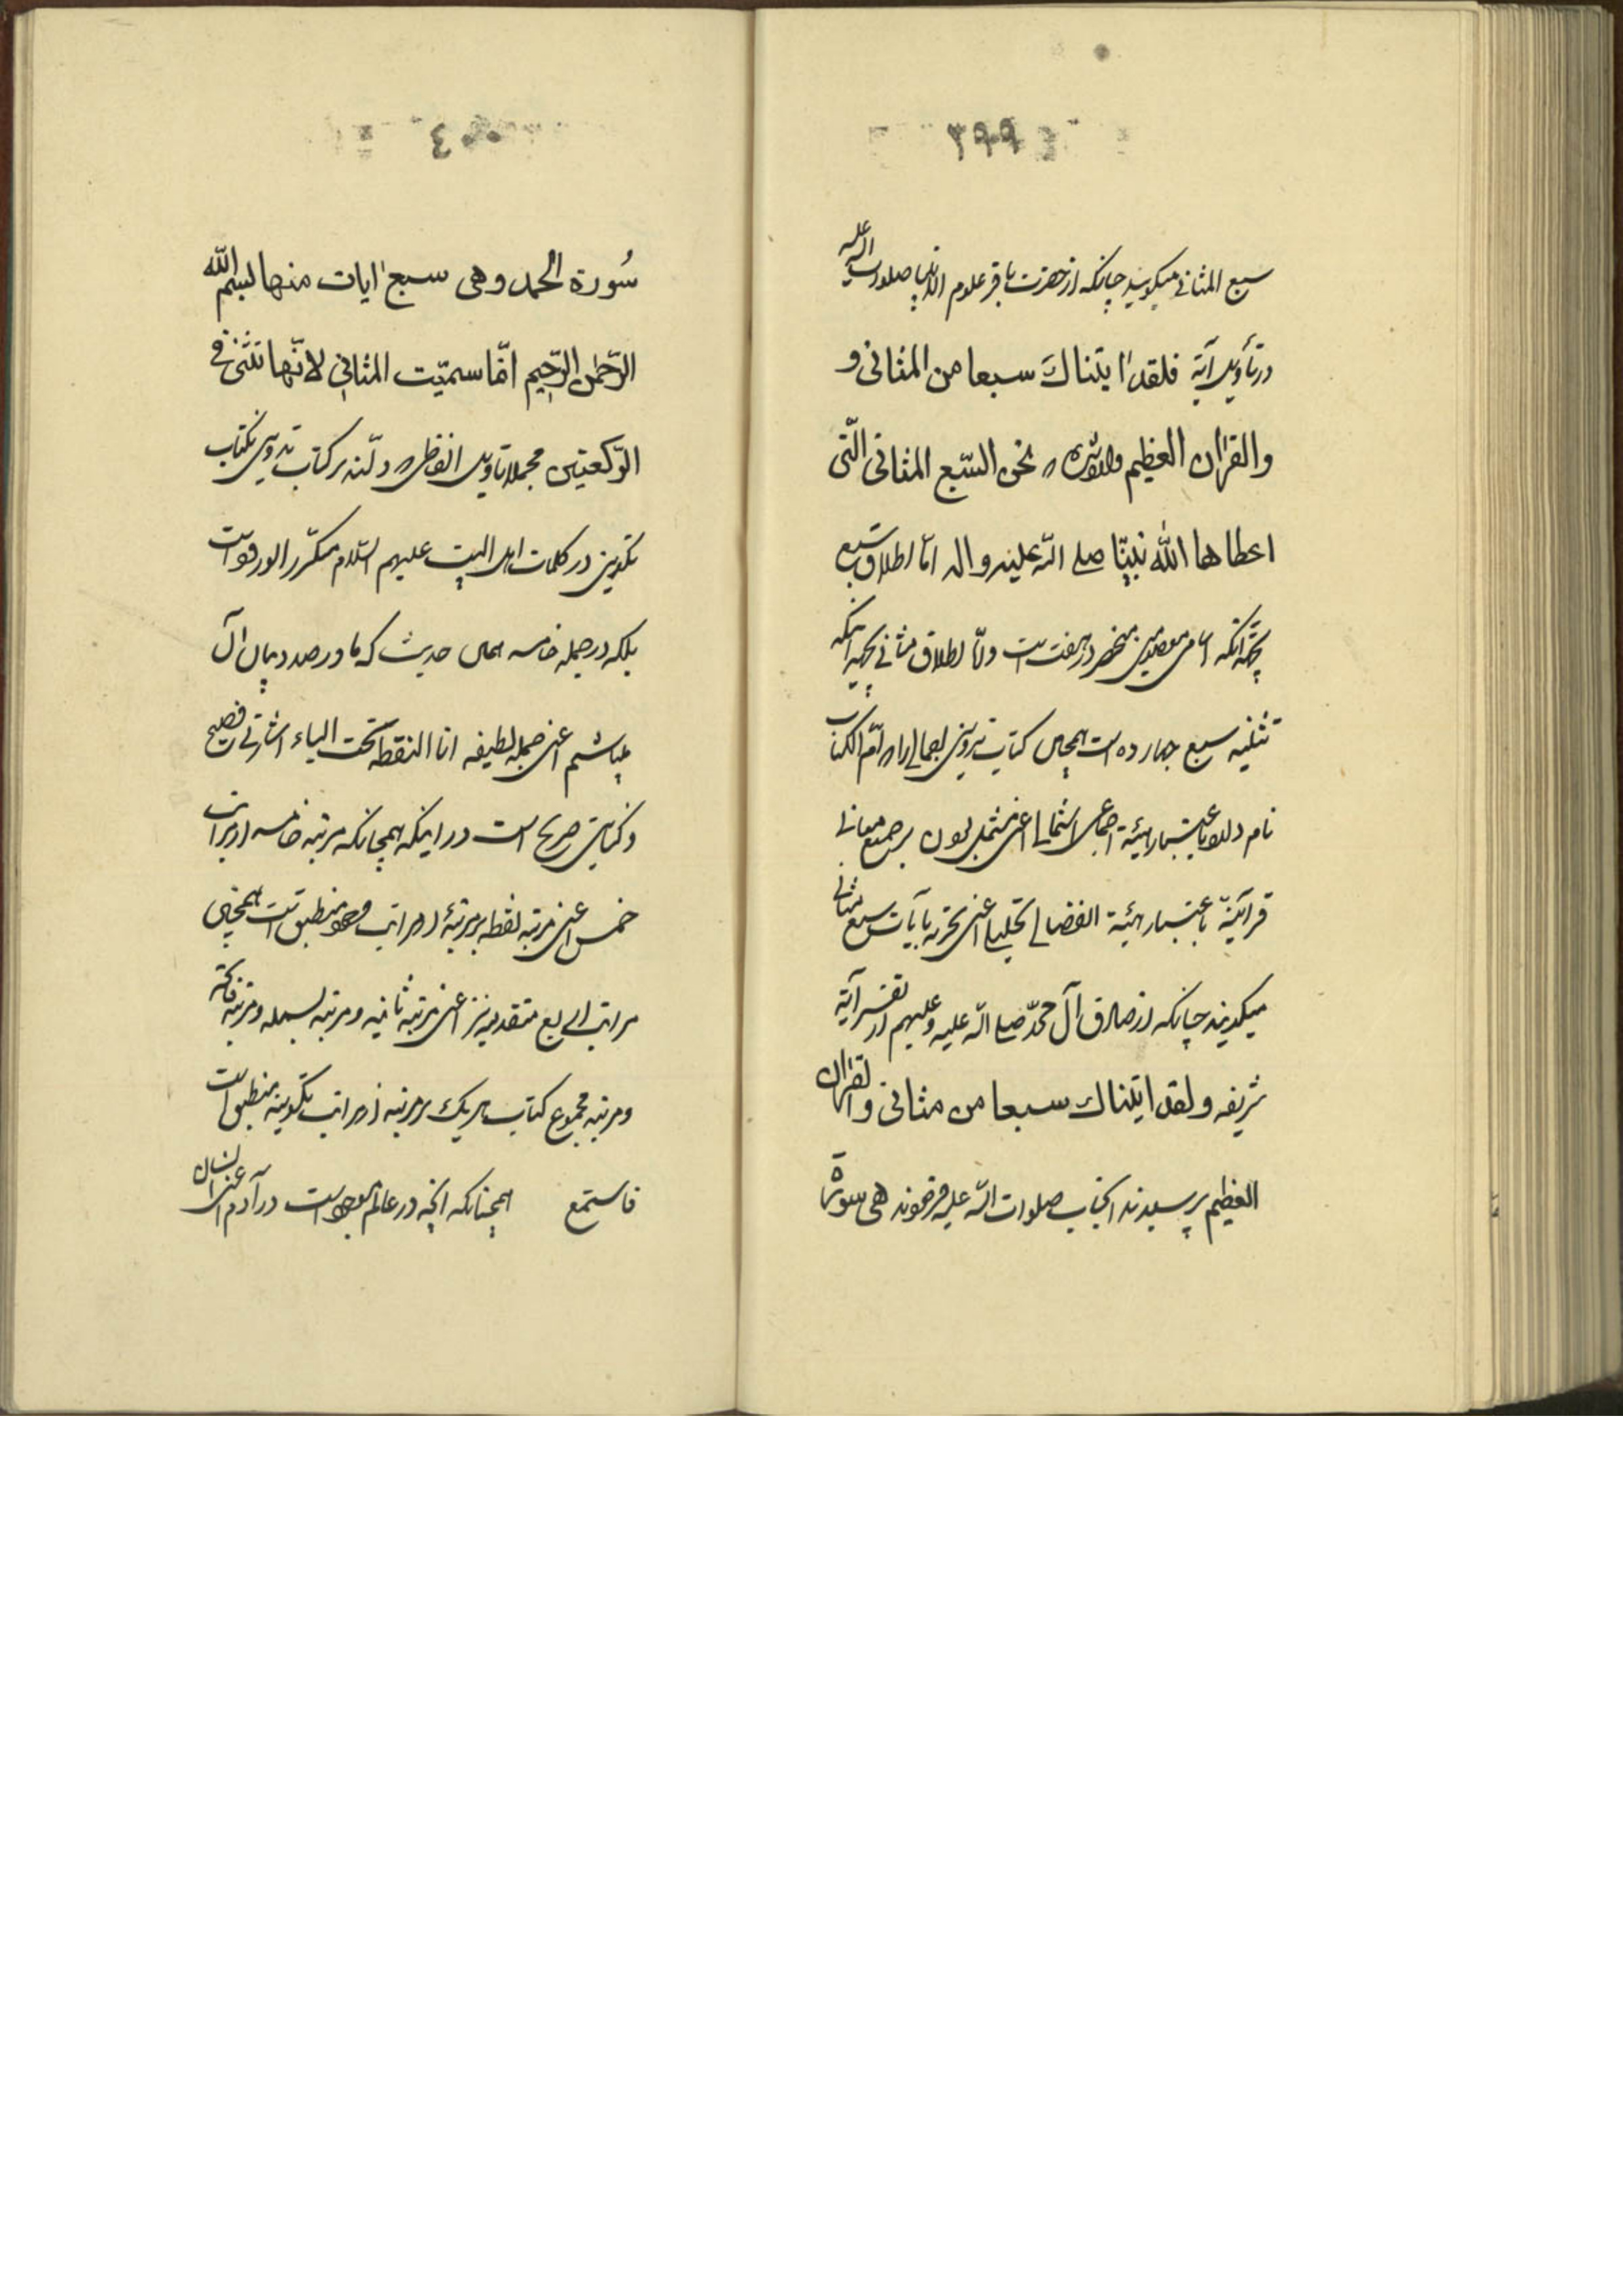 ۳۹۹
سبع المثانی میکویند چنانکه از حضرت باقر علوم الانبیا صلوات الله علیه
در تأویل آیة فلقد اتیناك سبعا من المثانی و
والقران العظیم نحن السبع المثانی الّتی
اعطاها الله نبیّنا صلی الله علیه واله امّا اطلاق سبع
بجهة آنکه اسامی معصومین منحصر در هفت است و امّا اطلاق مثانی بجهة اینکه
تثنیه سبع چهارده است همچنین کتاب تدوینی اجمالی را امّ الکتاب
نام دارد باعتبار هیئة اجماعی اشتمالی اعنی مشتمل بودن بر جمیع معانی
قرآنیّة باعتبار هیئة انفصالی تحلیلی اعنی تجزیه بآیات سبع مثانی
میکویند چنانکه از صادق آل محمّد صلی الله علیه وعلیهم از تفسیر آیة
شریفه ولقد اتیناك سبعا من مثانی والقران
العظیم پرسیدند انجناب صلوات الله علیه فرمودند هی سورة
٤۰۰
سُورة الحمد وهی سبع ایات منها بسم الله
الرّحمن الرّحیم امّا سمیّت المثانی لانّها تثنی فی
الرّکعتین مجملا تاویل الفاظ دالّه بر کتاب تدوین بکتاب
تکوین در کلمات اهل البیت علیهم السّلام مکرّر الورود است
بلکه در جمله خامسه همان حدیث که ما در صدد بیان آن
میباشیم اعنی جمله لطیفه انا النقطه تحت الباء اشارتی فصیح
وکنایتی صریح است در اینکه همچنانکه مرتبه خامسه از مراتب
خمس اعنی مرتبه نقطه بر مرتبهٔ از مراتب وجود منطبق است همچنین
مراتب اربع متقدمه نیز اعنی مرتبه ثانیه ومرتبه بسمله ومرتبه فاتحه
ومرتبه مجموع کتاب هر یك بر مرتبه از مراتب تکوینیه منطبق است
فاستمع همچنانکه انچه در عالم موجود است در آدم اعنی انسان